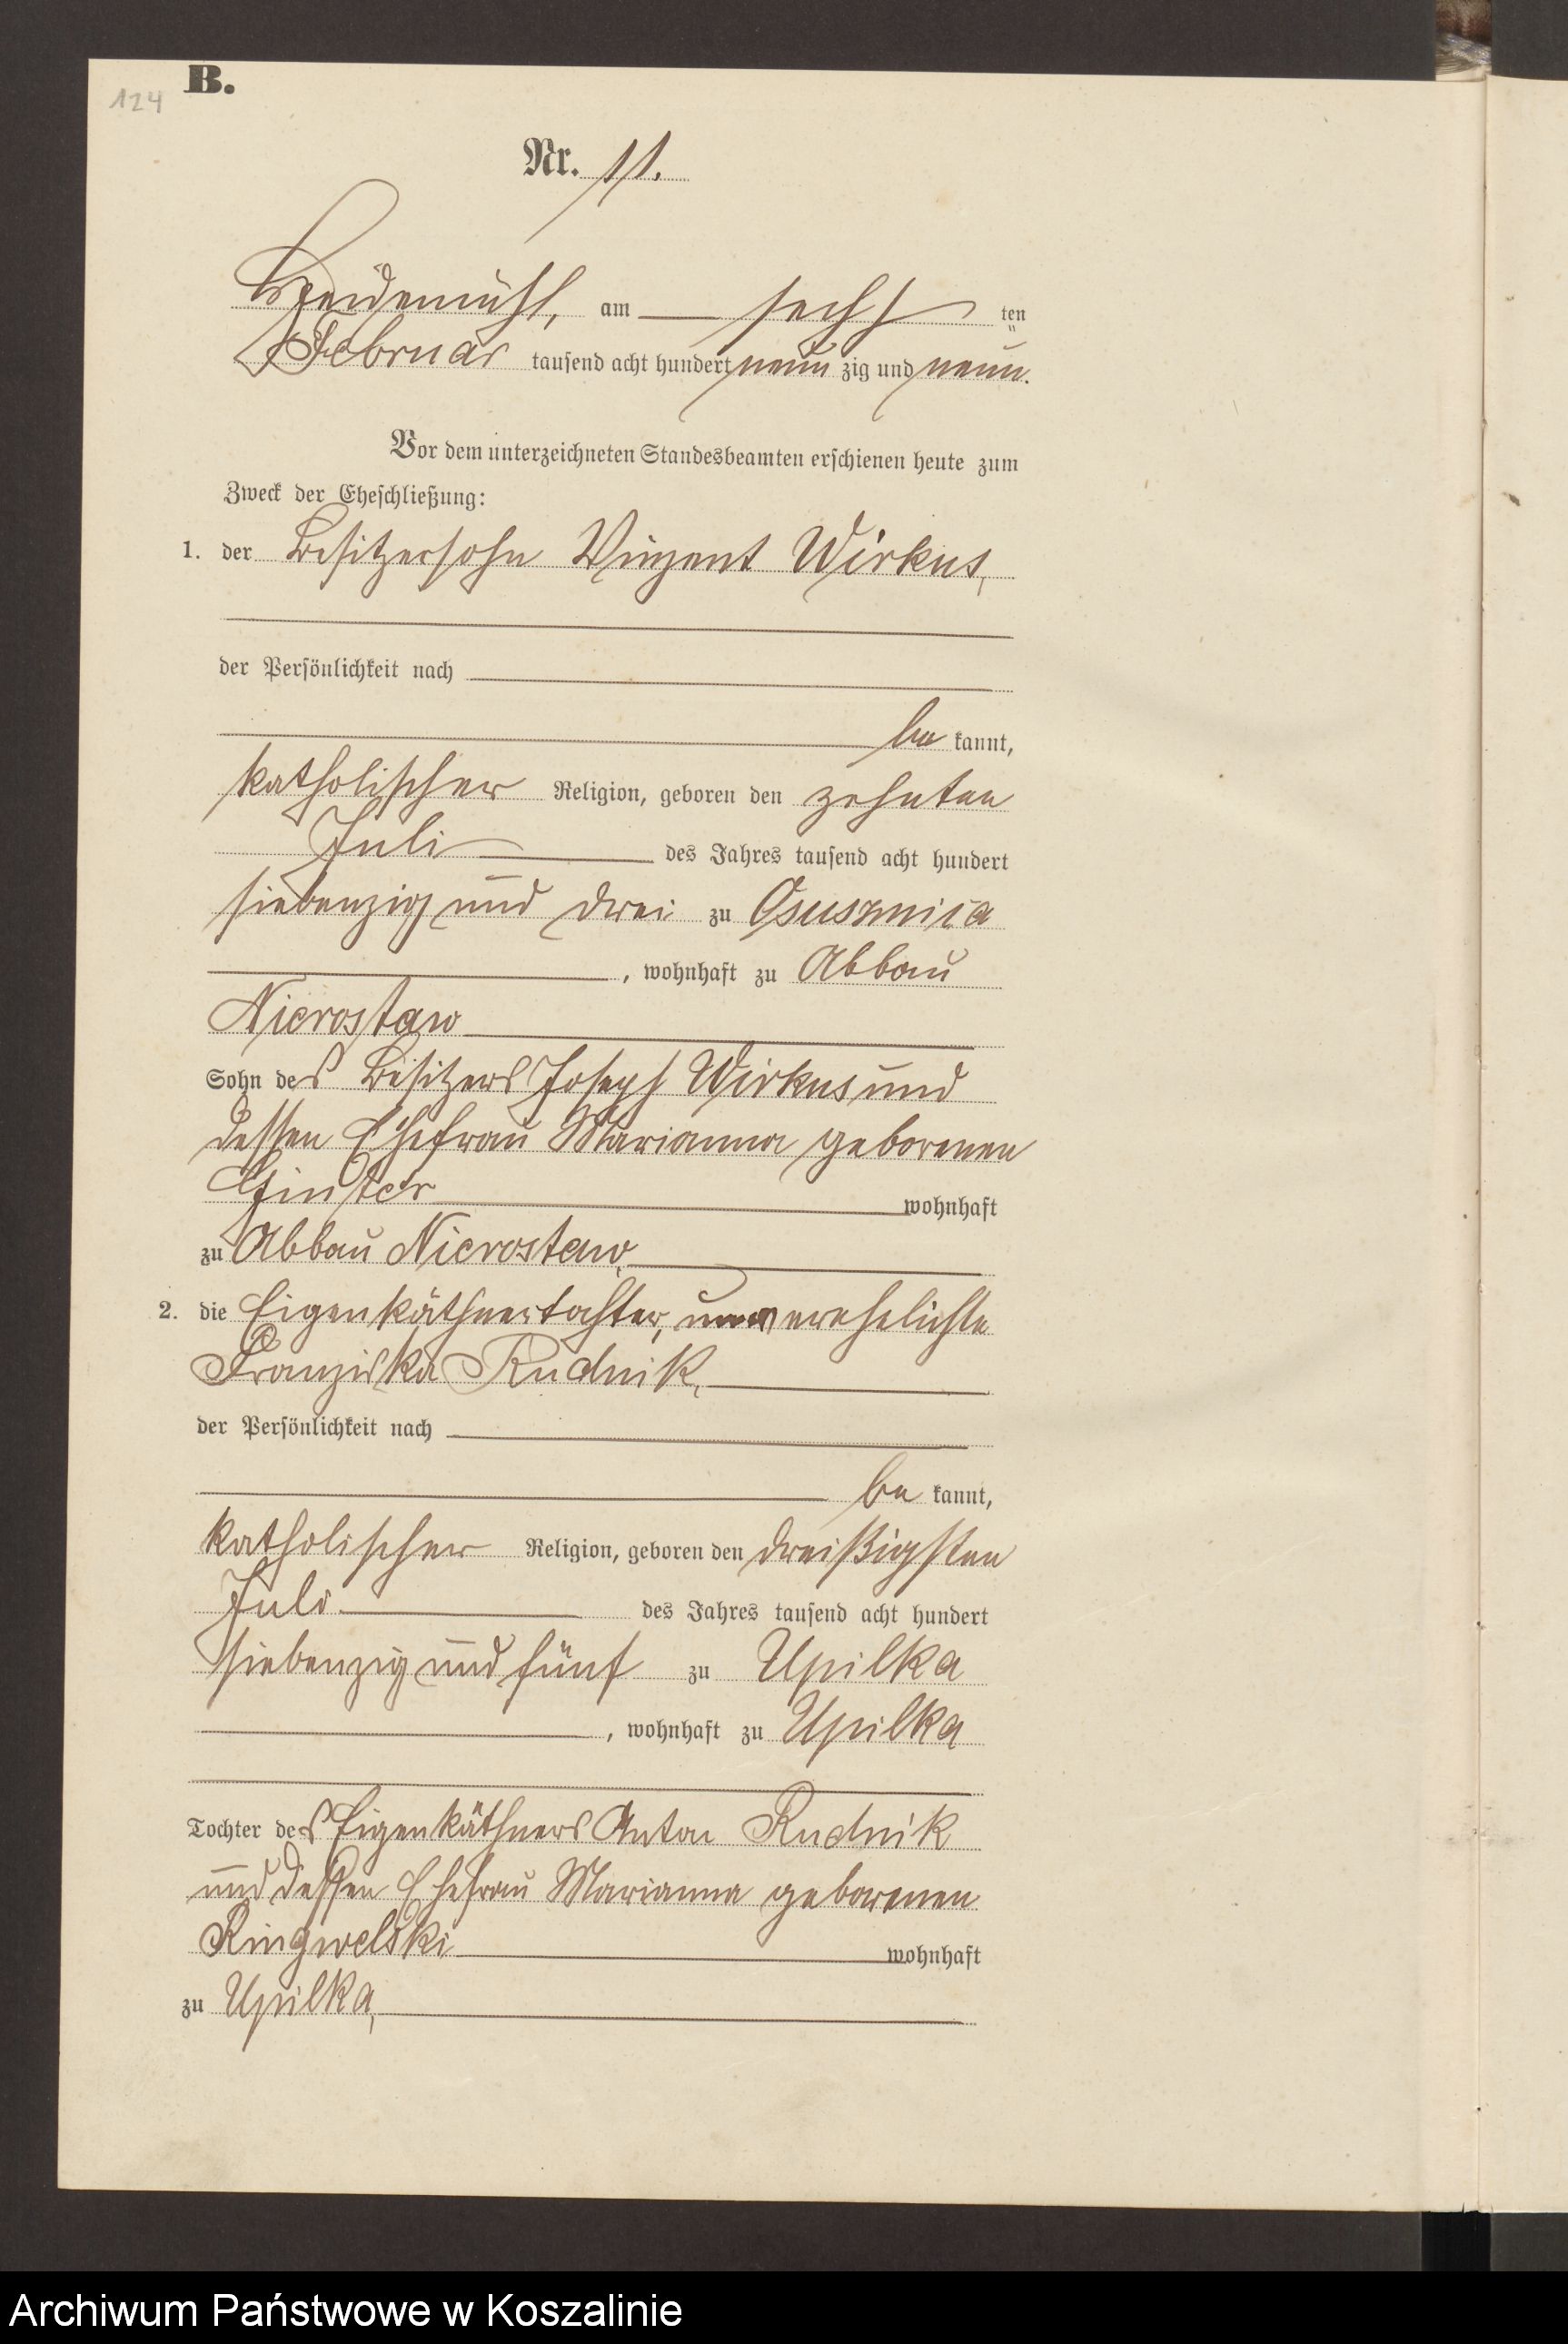 124 B.
Nr. 11.
Breidemühl, am sechs ten
Februar tausend acht hundert neun zig und neun.
Vor dem unterzeichneten Standesbeamten erschienen heute zum
Zweck der Eheschließung:
1. der Besitzersohn Vinzent Wirkus,
der Persönlichkeit nach
be kannt,
katholischer Religion, geboren den zehnten
Juli des Jahres tausend acht hundert
siebenzig und drei zu Osusznica
, wohnhaft zu Abbau
Nierostaw
Sohn des Besitzers Joseph Wirkus und
dessen Ehefrau Marianna geborenen
Ginter wohnhaft
zu Abbau Nierostaw,
2. die Eigenkäthnertochter, unverehelichte
Franziska Rudnik,
der Persönlichkeit nach
be kannt,
katholischer Religion, geboren den dreißigsten
Juli des Jahres tausend acht hundert
siebenzig und fünf zu Upilka
, wohnhaft zu Upilka
Tochter des Eigenkäthners Anton Rudnik
und dessen Ehefrau Marianna geborenen
Ringwelski wohnhaft
zu Upilka,
Archiwum Państwowe w Koszalinie